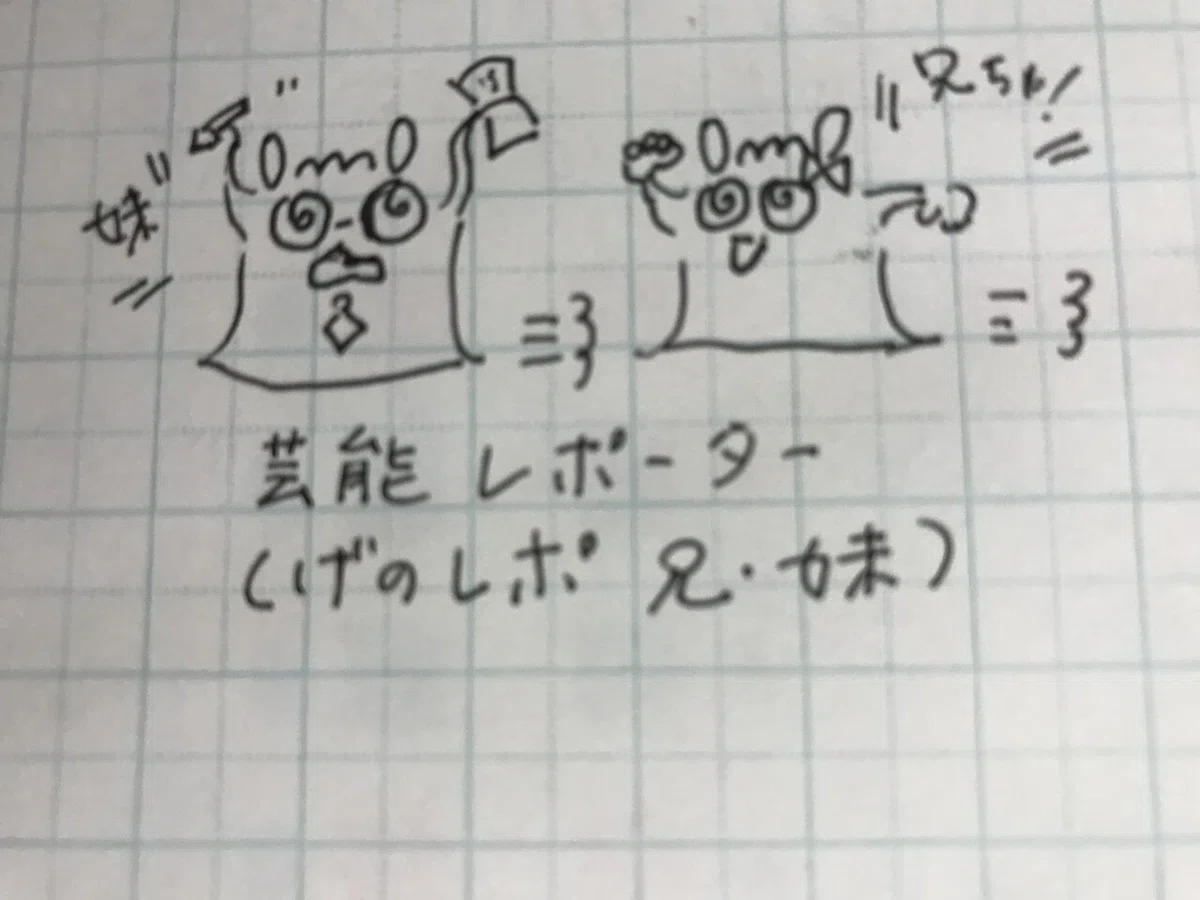 "妹"
"兄ちゃん!"
芸能レポーター
(げのレポ 兄・妹)